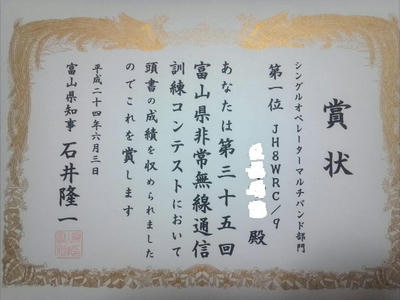 賞状
シングルオペレーターマルチバンド部門
第一位 JH8WRC/9
殿
あなたは第三十五回
富山県非常無線通信
訓練コンテストにおいて
頭書の成績を収められました
のでこれを賞します
平成二十四年六月三日
富山県知事 石井隆一